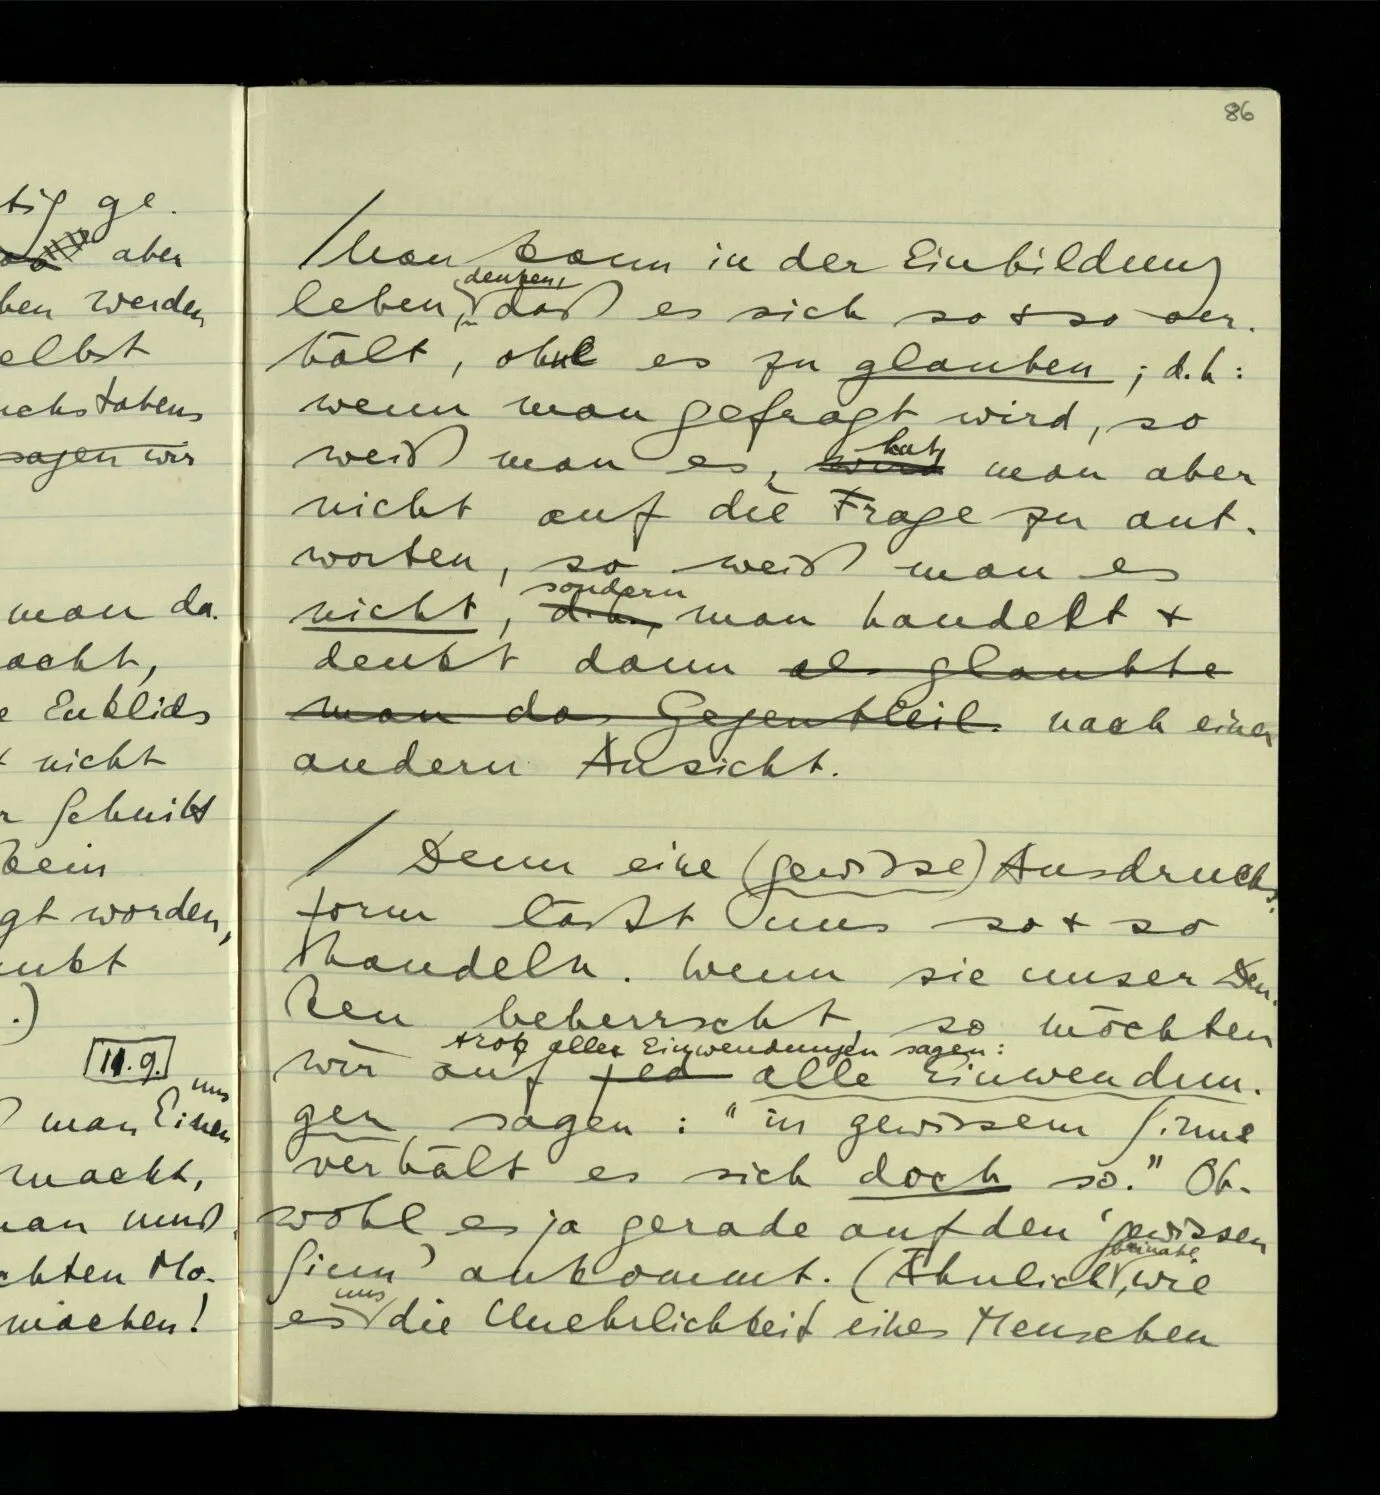 tig ge.
aber
ben werden
elbst
uchstabens
sagen wir
man da.
acht,
e Euklids
nicht
r Schnitt
kein
gt worden,
nkt
.)
11.9.
uns
man Einen
macht,
man muß
chten Mo-
machen!
86
/ Man kann in der Einbildung
denken,
leben, daß es sich so + so ver-
hält, ohne es zu glauben; d.h:
wenn man gefragt wird, so
hat
weiß man es, wird man aber
nicht auf die Frage zu ant-
worten, so weiß man es
sondern
nicht, d.h., man handelt +
denkt dann als glaubte
man das Gegenteil. nach einer
andern Ansicht.
/ Denn eine (gewisse) Ausdrucks-
form läßt uns so + so
handeln. Wenn sie unser Den-
ken beherrscht, so möchten
trotz aller Einwendungen sagen:
wir auf jed alle Einwendun-
gen sagen: "in gewissem Sinne
verhält es sich doch so." Ob-
wohl es ja gerade auf den 'gewissen
beinahe
Sinn' ankommt. (Ähnlich, wie
uns
es die Unehrlichkeit eines Menschen